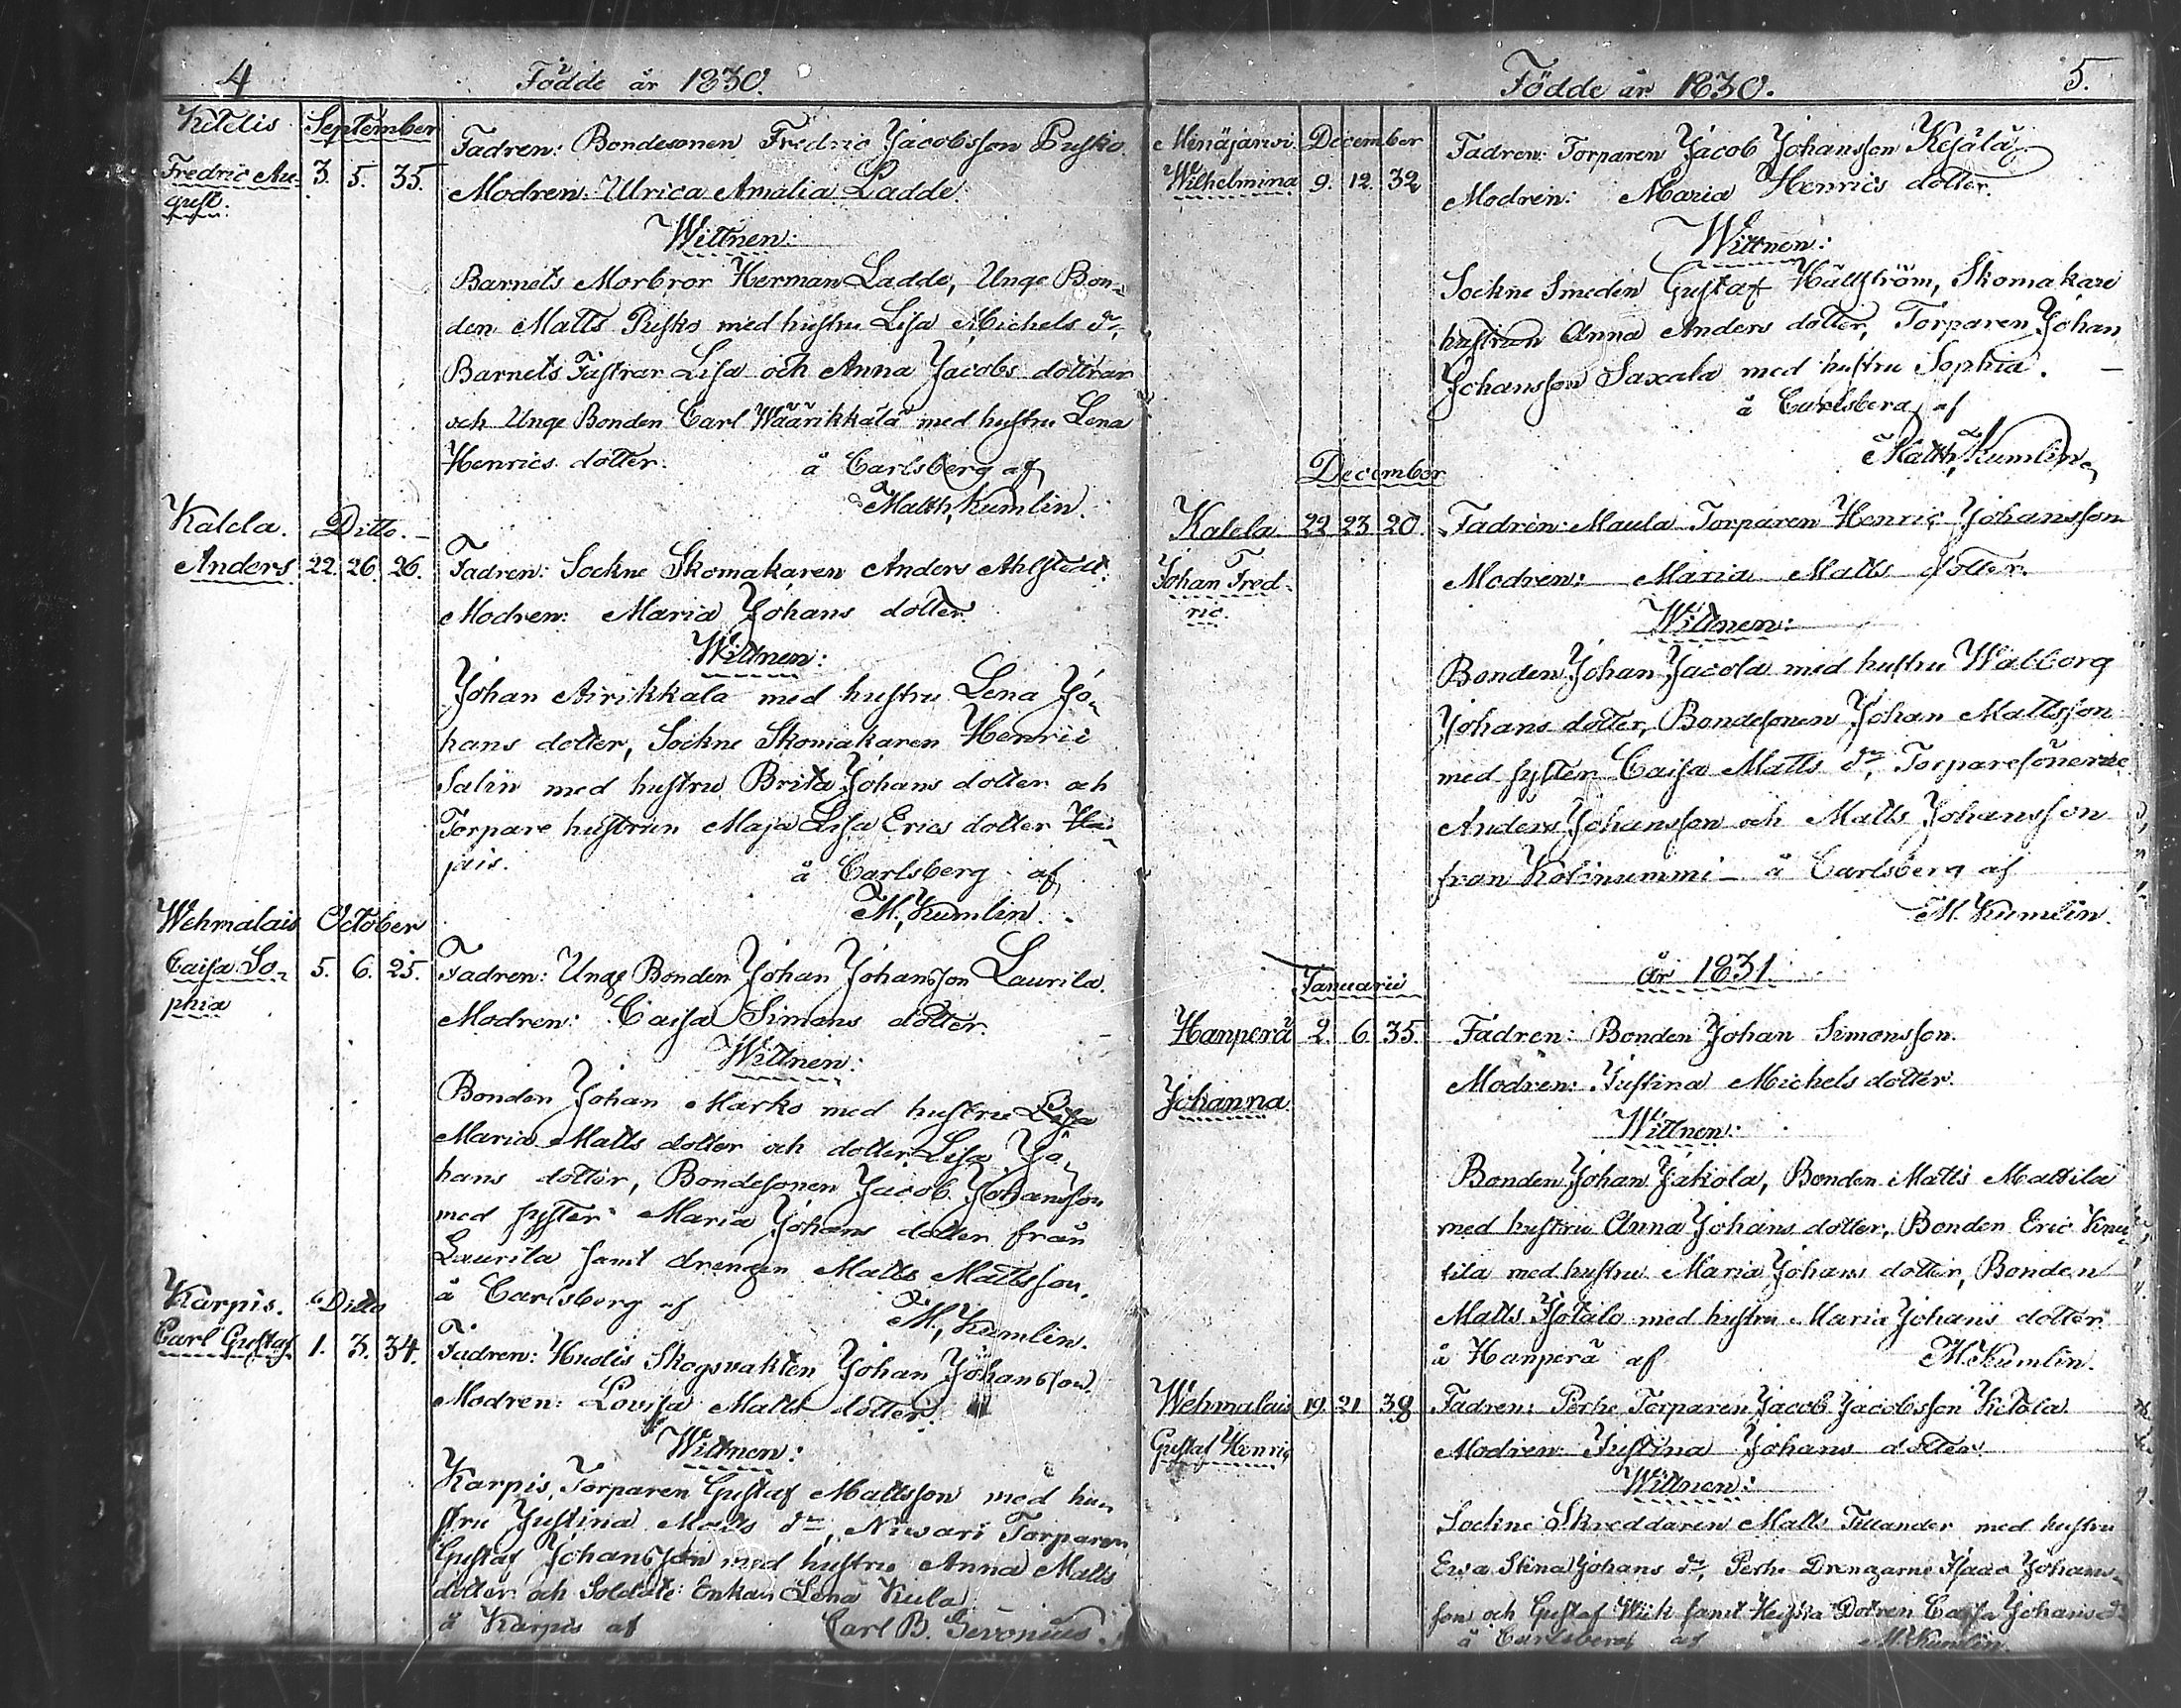 4
Födde år 1830.
Kitelis September
Fadren: Bondesonen Fredric Jacobsson Pusko.
Fredric Au-
gust. 3. 5. 35.
Modren: Ulrica Amalia Ladde.
Wittnen:
Barnets Morbror Herman Ladde, Unge Bon-
den Matts Pusko med hustru Lisa Michels dr,
Barnets Fastrar Lisa och Anna Jacobs dottrar
och Unge Bonden Carl Wäärikkälä med hustru Lena
Henrics dotter. å Carlsberg af
Matth. Kumlin.
Kalela. Ditto.
Anders 22. 26. 26. Fadren: Sockne Skomakaren Anders Ahlstedt.
Modren: Maria Johans dotter.
Wittnen:
Johan Airikkala med hustru Lena Jo-
hans dotter, Sockne Skomakaren Henric
Salin med hustru Brita Johans dotter och
Torpare hustrun Maja Lisa Erics dotter
å Carlsberg af
M. Kumlin.
Wehmalais October
Caisa So-
phia 5. 6. 25. Fadren: Unge Bonden Johan Johansson Laurila.
Modren: Caisa Simons dotter.
Wittnen:
Bonden Johan Marko med hustru Lisa
Maria Matts dotter och dotter Lisa Jo-
hans dotter, Bondesonen Jacob Johansson
med syster Maria Johans dotter från
Laurila samt drengen Matts Mattsson.
å Carlsberg af M. Kumlin.
Karpis. Ditto
Carl Gustaf 1. 3. 34. Fadren: Hudis Skogsvakten Johan Johansson.
Modren: Lovisa Matts dotter.
Wittnen:
Karpis Torparen Gustaf Mattsson med hu-
stru Justina Matts dr, Niwari Torparen
Gustaf Johansson med hustru Anna Matts
dotter och Soldate Enkan Lena Kula
å Karpis af Carl B. Gevonius.
Födde år 1830.
5.
Minäjärwi. December
Wilhelmina 9. 12. 32 Fadren: Torparen Jacob Johansson Kejälä
Modren: Maria Henrics dotter.
Wittnen:
Sockne Smeden Gustaf Hällström, Skomakare
hustrun Anna Anders dotter, Torparen Johan
Johansson Saxala med hustru Sophia.
å Carlsberg af
Matth. Kumlin.
December
Kalela 22 23 20. Fadren: Maula Torparen Henric Johansson
Johan Fred-
ric.
Modren: Maria Matts dotter.
Wittnen:
Bonden Johan Jacola med hustru Walborg
Johans dotter, Bondesonen Johan Mattsson
med syster Caisa Matts dr, Torparesönerne
Anders Johansson och Matts Johansson
från Kolinummi å Carlsberg af
M. Kumlin.
år 1831.
Januarii
Hanperä 2. 6. 35. Fadren: Bonden Johan Simonsson.
Johanna. Modren: Justina Michels dotter.
Wittnen:
Bonden Johan Jakola, Bonden Matts Mattila
med hustru Anna Johans dotter, Bonden Eric Knu-
tila med hustru Maria Johans dotter, Bonden
Matts Isotalo med hustru Maria Johans dotter
å Hanperä af M. Kumlin.
Wehmalais 19. 21. 38 Fadren: Perhe Torparen Jacob Jacobsson Kitola.
Gustaf Henric Modren: Justina Johans dotter
Wittnen:
Sockne Skreddaren Matts Tillander med hustru
Ewa Stina Johans dr, Perhe Drengarne Isaac Johans-
son och Gustaf Wiik samt Dotren Caisa Johans dr
å Carlsberg af M. Kumlin.